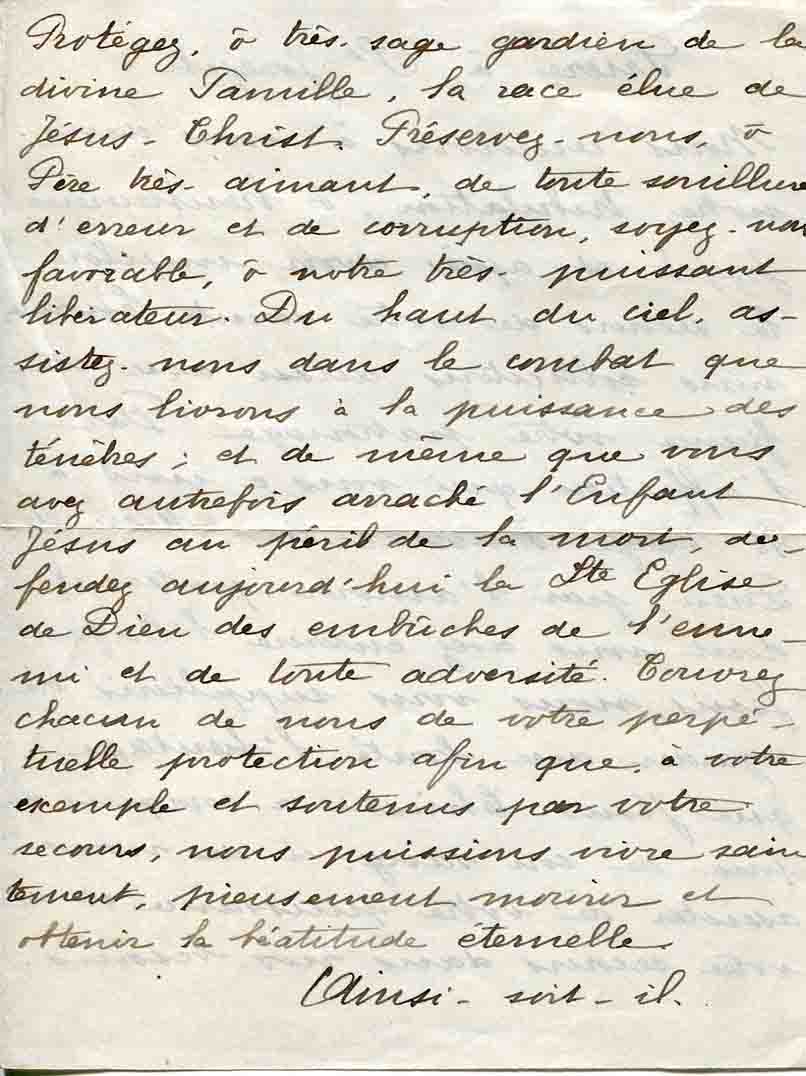 Protégez, ô très-sage gardien de la
divine Famille, la race élue de
Jésus-Christ. Préservez-nous, ô
Père très-aimant, de toute souillure
d'erreur et de corruption, soyez-nous
favorable, ô notre très-puissant
libérateur. Du haut du ciel, as-
sistez-nous dans le combat que
nous livrons à la puissance des
ténèbres ; et de même que vous
avez autrefois arraché l'Enfant
Jésus au péril de la mort, dé-
fendez aujourd'hui la Ste Eglise
de Dieu des embûches de l'enne-
mi et de toute adversité. Couvrez
chacun de nous de votre perpé-
tuelle protection afin que, à votre
exemple et soutenus par votre
secours, nous puissions vivre sain
tement, pieusement mourir et
obtenir la béatitude éternelle.
Ainsi-soit-il.